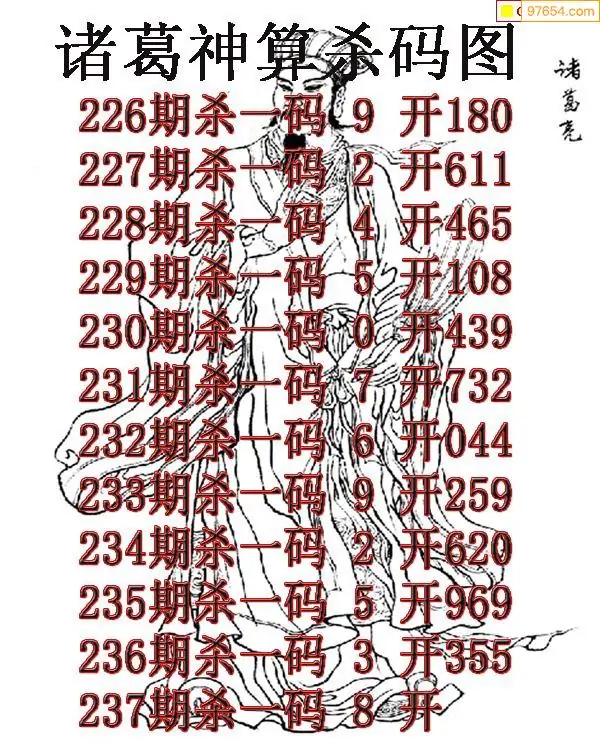 97654.com
诸葛神算杀码图
诸葛亮
226期杀一码 9 开180
227期杀一码 2 开611
228期杀一码 4 开465
229期杀一码 5 开108
230期杀一码 0 开439
231期杀一码 7 开732
232期杀一码 6 开044
233期杀一码 9 开259
234期杀一码 2 开620
235期杀一码 5 开969
236期杀一码 3 开355
237期杀一码 8 开